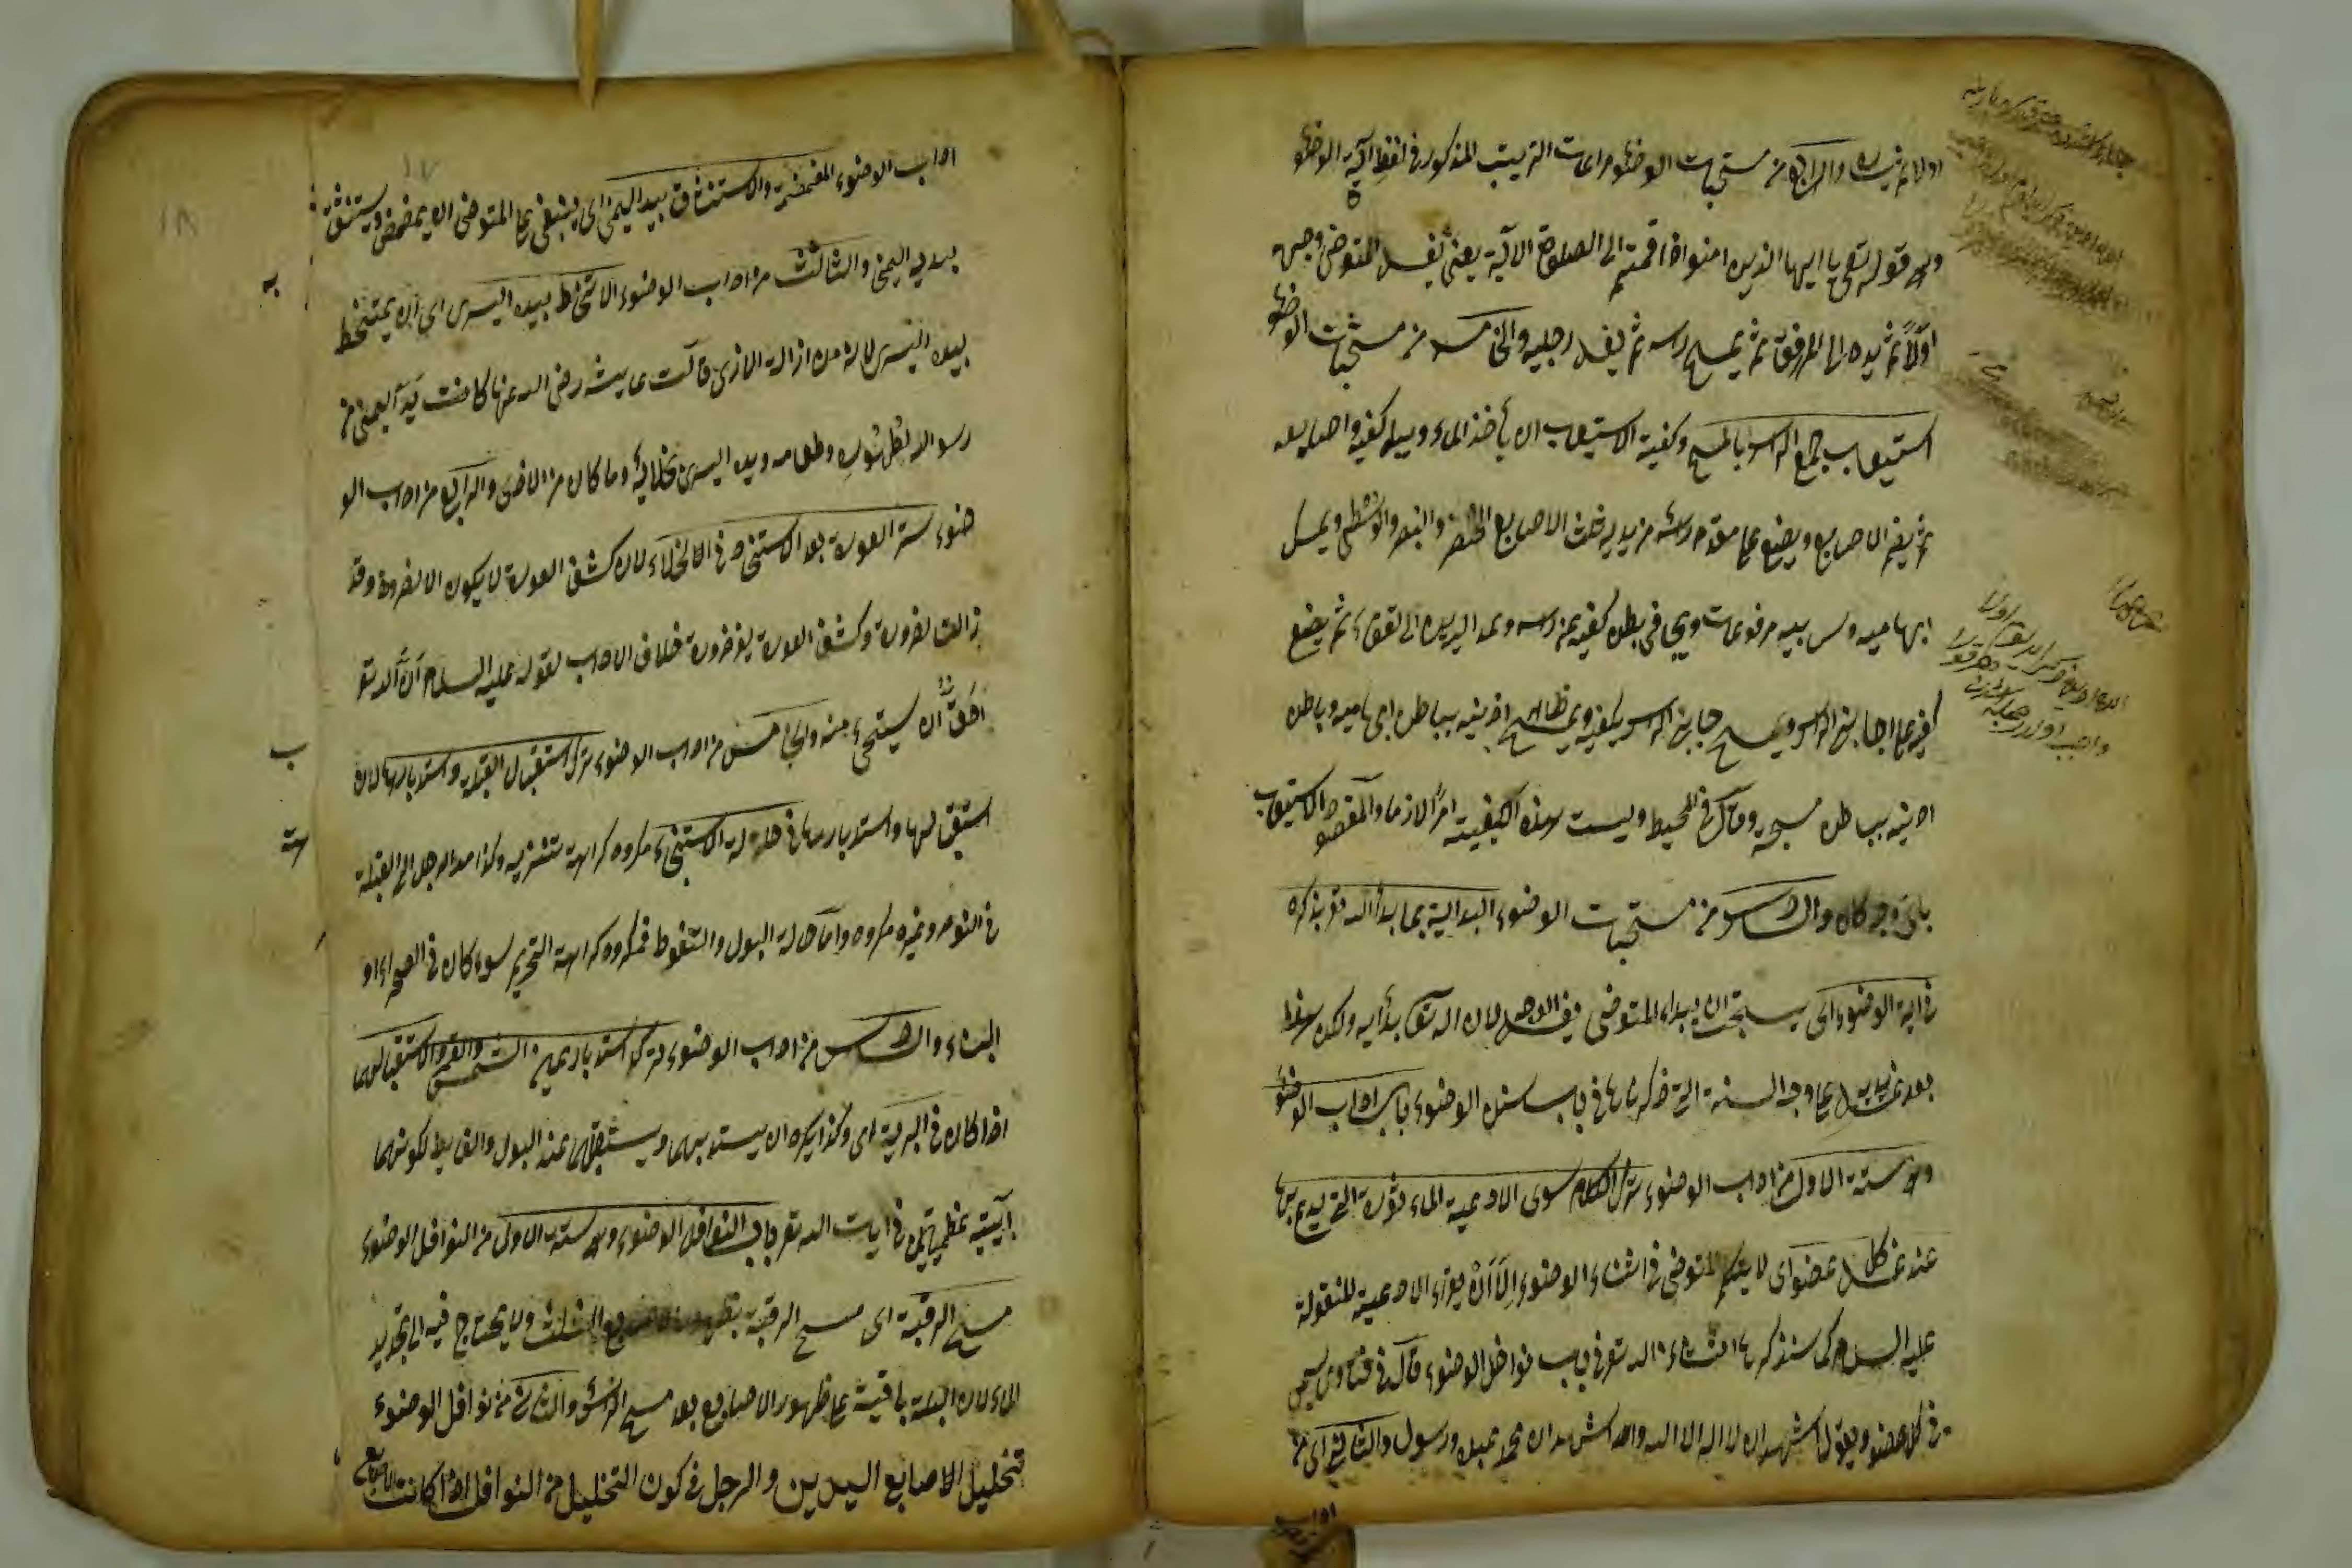 اولا ثم يساره والرابع من مستحبات الوضوء مراعات الترتيب المذكور في لفظ اية الوضوء
وهو قوله تعالى يا ايها الذين امنوا اذا قمتم الى الصلوة الاية يعني يغسل المتوضى وجهه
اولا ثم يده الى المرفق ثم يمسح رأسه ثم يغسل رجليه والخامسة من مستحبات الوضوء
استيعاب جميع الرأس بالمسح وكيفية الاستيعاب ان يأخذ الماء ويبل كفيه واصابعه
ثم يضم الاصابع ويضع على مقدم رأسه من يديه ثلث الاصابع الخنصر والبنصر والوسطى ويمسك
ابهاميه وسبابتيه مرفوعات ويجافي بطن كفيه عن رأسه ويمد اليدين الى القفاء ثم يضع
كفيه على جانبي الرأس ويمسح جانبي الرأس بكفيه ويمسح ظاهر اذنيه بباطن ابهاميه وباطن
اذنيه بباطن مسبحه وقال في المحيط وليست هذه الكيفية امرا لازما والمقصود الاستيعاب
باى وجه كان والسادس من مستحبات الوضوء البداية بما بدأ الله تعالى بذكره
في اية الوضوء اى يستحب ان يبداء المتوضى بغسل الوجه لان الله تعالى بدأ به ولكن هذا
بعد غسل يديه على وجه السنة التي ذكرناها في باب سنن الوضوء باب اداب الوضوء
وهو ستة الاول من اداب الوضوء ترك الكلام سوى الادعية الماءثورة التي يدعو بها
عند غسل كل عضو اى لا يتكلم المتوضى في اثناء الوضوء الا ان يقراء الادعية المنقولة
عليه السلام كما سنذكرها انشاء الله تعالى في باب نوافل الوضوء قال في فتاوى يسمى
في كل عضو ويقول اشهد ان لا اله الا الله واشهد ان محمدا عبده ورسوله والثاني اى من
اداب
اداب الوضوء المضمضة والاستنشاق بيده اليمنى اى ينبغي على المتوضى ان يمضمض ويستنشق
بيديه اليمنى والثالث من اداب الوضوء الامتخاط بيده اليسرى اى ان يمتخط
بيده اليسرى لانه من ازالة الاذى قالت عايشة رضى الله عنها كانت يد اليمنى من
رسول الله لطهوره وطعامه ويده اليسرى لخلائه وما كان من الاذى والرابع من اداب الو
ضوء ستر العورة بعد الاستنجاء في الاخلاء لان كشف العورة لا يكون الا لضرورة وقد
زالت الضرورة وكشف العورة بغير ضرورة خلاف الاداب لقوله عليه السلام ان الله تعالى
احق ان يستحى منه والخامس من اداب الوضوء ترك استقبال القبلة واستدبارها لان
استقبالها واستدبارها في حالة الاستنجاء مكروه كراهة تنزيه وكذا مد الرجل الى القبلة
في النوم وغيره مكروه واما حالة البول والتغوط فمكروه كراهة التحريم سواء كان في الصحراء او
البناء والسادس من اداب الوضوء ترك استدبار عين الشمس والقمر واستقبالهما
اذا كان في البرية اى وكذا يكره ان يستدبرهما ويستقبلهما عند البول والغايط لكونهما
آيتين عظيمتين من ايات الله تعالى باب النوافل الوضوء وهو ستة الاول من النوافل الوضوء
مسح الرقبة اى مسح الرقبة بظهور الاصابع الثلث ولا يحتاج فيه الى تجديد
الماء لان البلة باقية على ظهور الاصابع بعد مسح الرأس والثاني من نوافل الوضوء
تخليل الاصابع اليدين والرجل في كون التخليل من النوافل اذا كانت الاصابع